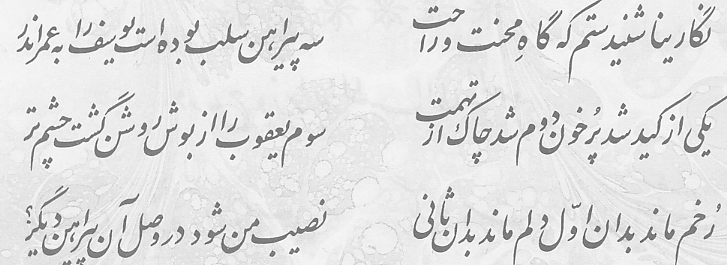 نگارینا شنیدستم که گاهِ محنت و راحت سه پیراهن سلب بوده است یوسف را به عمر اندر
یکی از کید شد پُرخون دوم شد چاک از تهمت سوم یعقوب را از بوش روشن گشت چشم تر
رُخم ماند بدان اوّل دلم ماند بدان ثانی نصیب من شود در وصل آن پیراهن دیگر؟